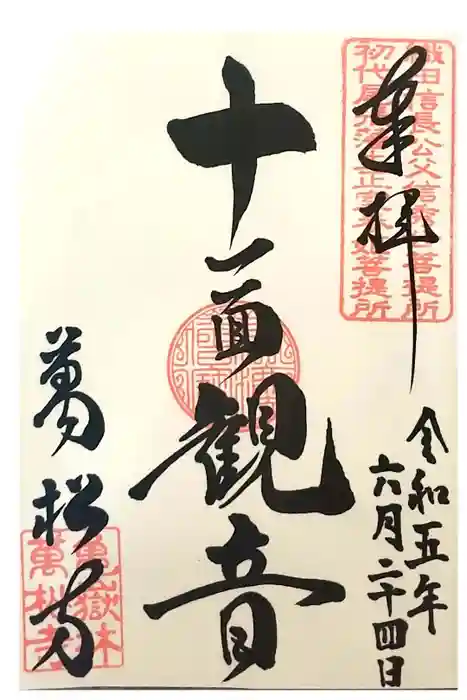 奉拝
織田信長公父信秀公菩提所
初代尾張藩主正室春姫菩提所
令和五年
六月二十四日
十一面観音
萬松寺
亀嶽林
萬松寺